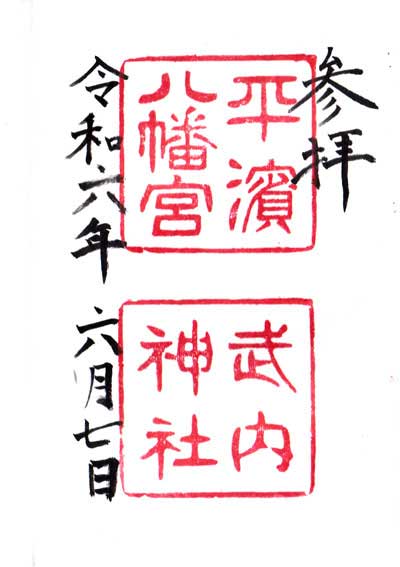 参拝
平濱
八幡宮
武内
神社
令和六年 六月七日